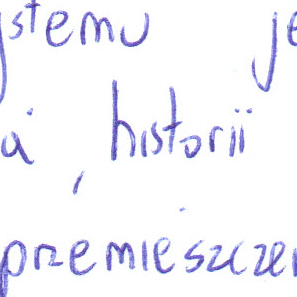 ystemu je
a historii
przemieszcze